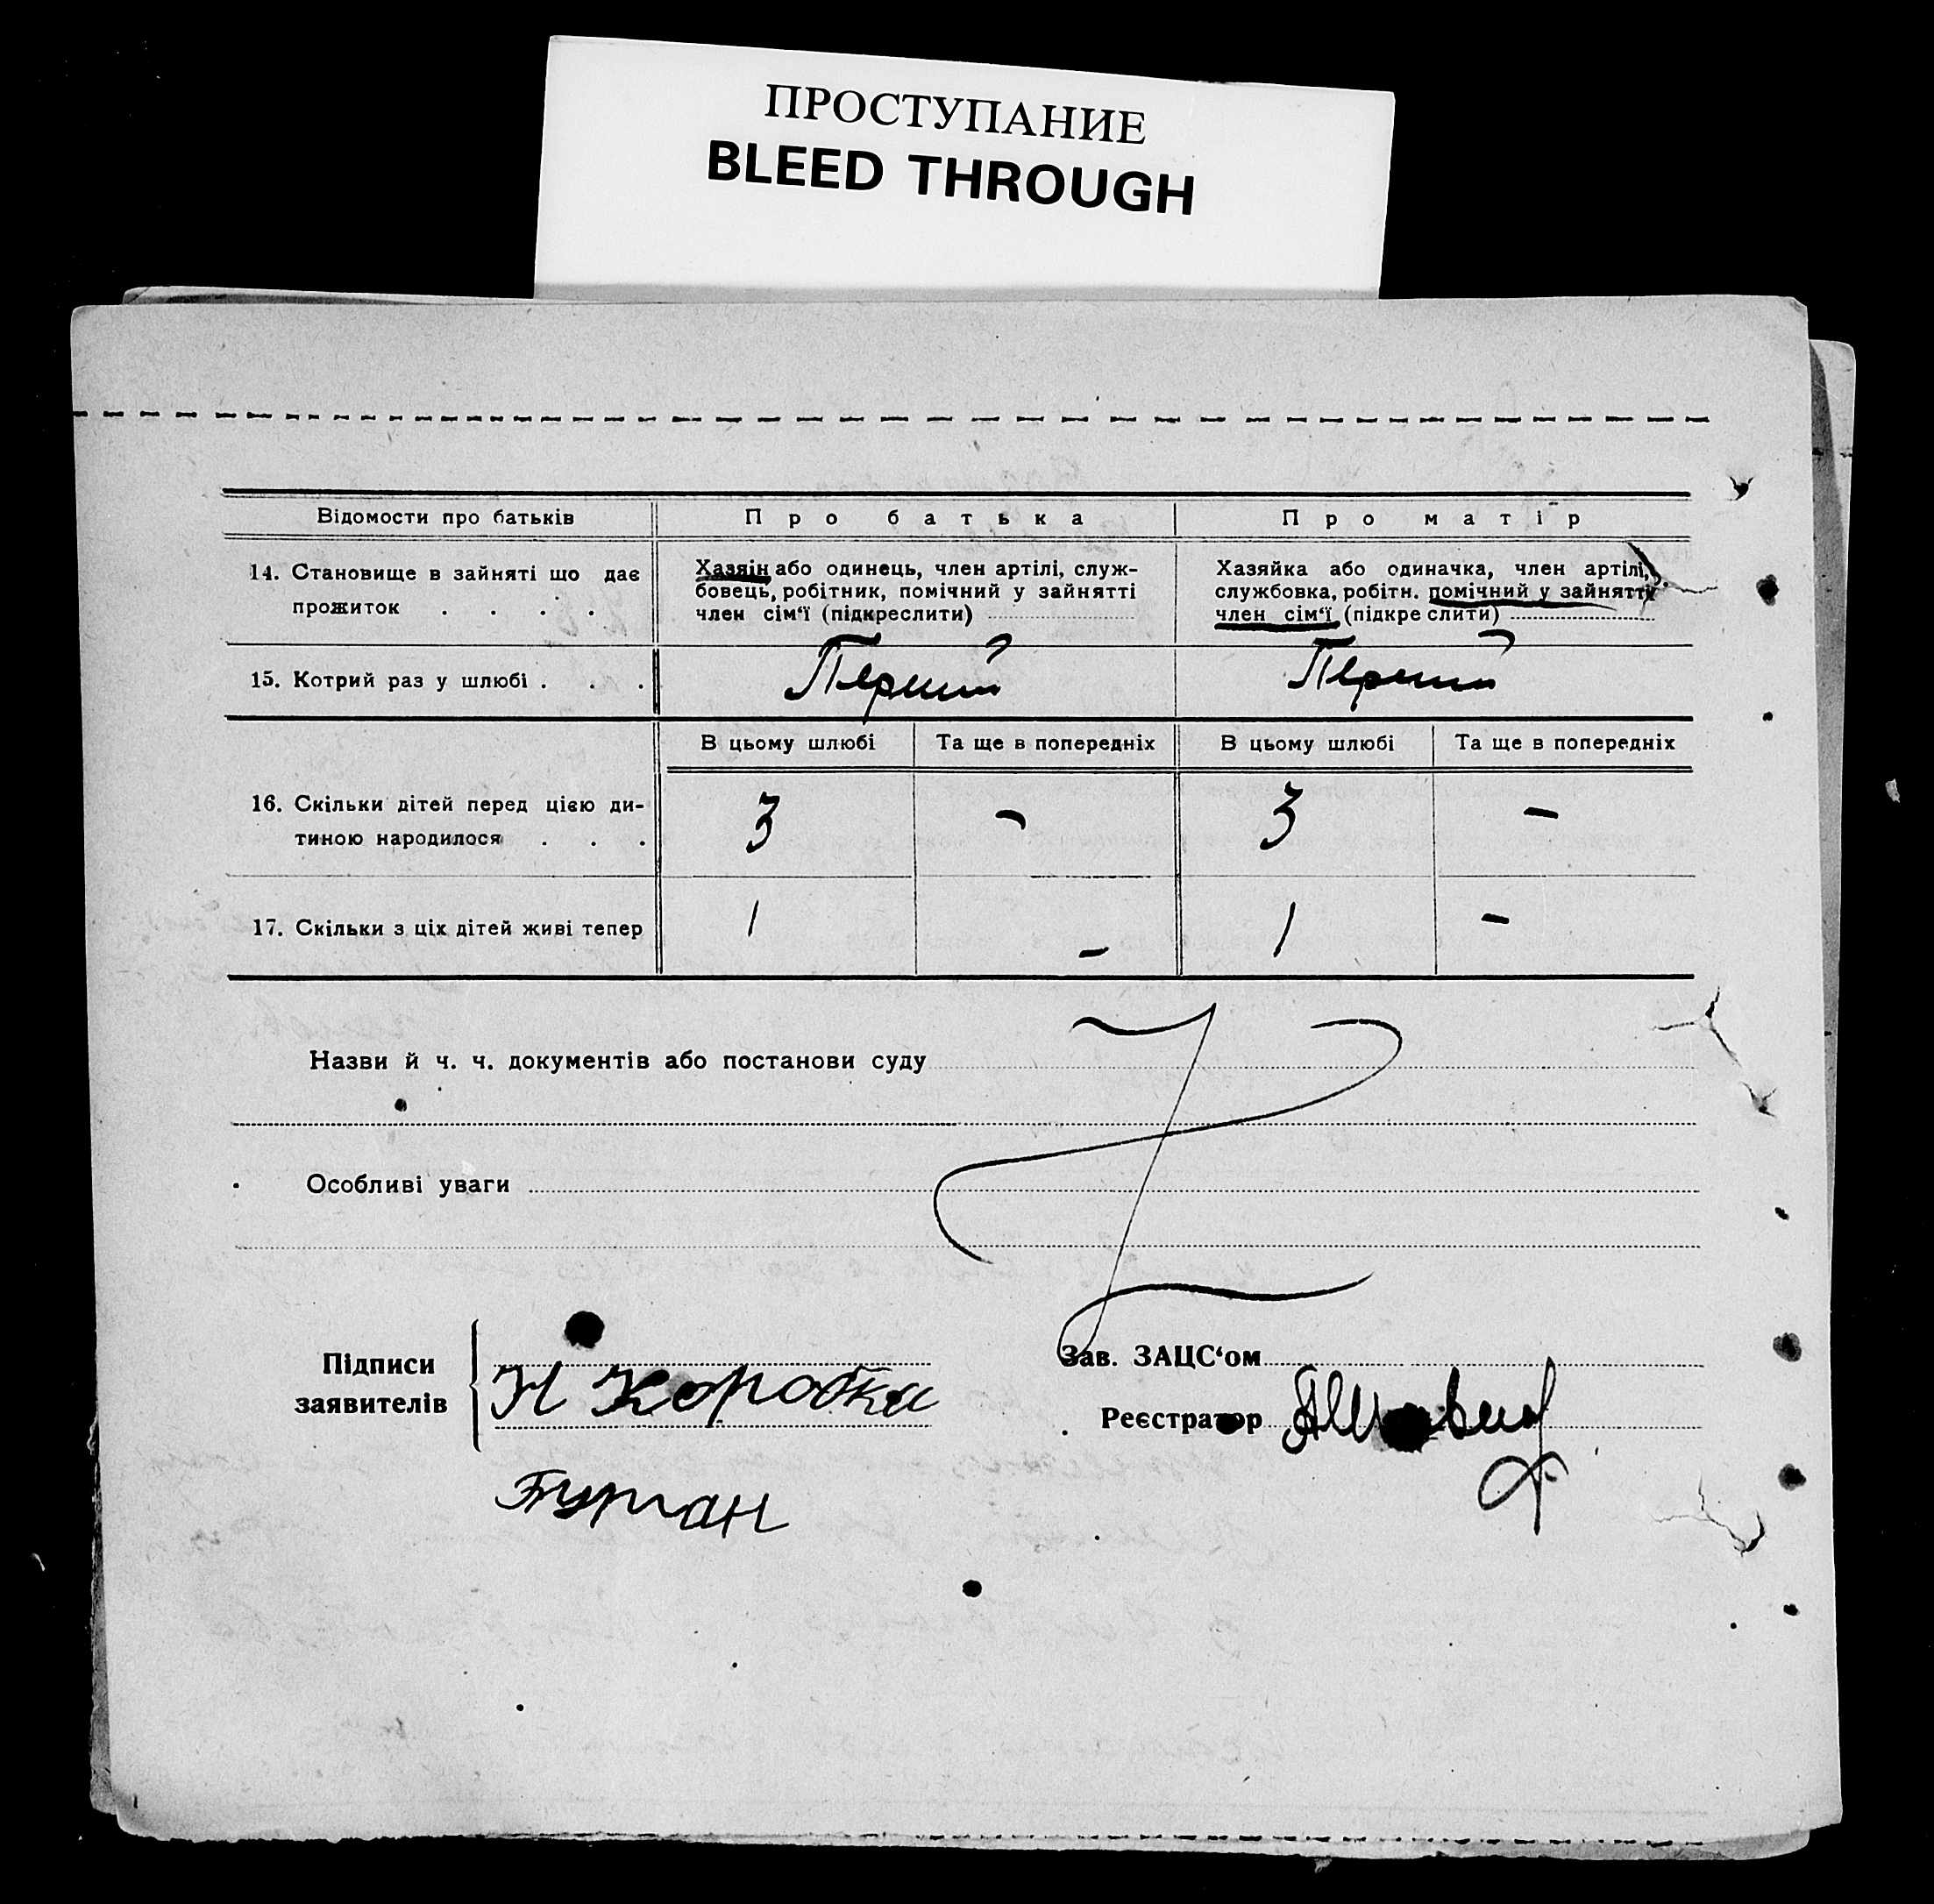 ПРОСТУПАНИЕ
BLEED THROUGH
Відомости про батьків
Про батька
Про матір
14. Становище в зайняті що дає
прожиток . . . .
Хазяін або одинець, член артілі, служ-
бовець, робітник, помічний у зайнятті
член сім‘ї (підкреслити)
Хазяйка або одиначка, член артілі,
службовка, робітн. помічний у зайнятті
член сім‘ї (підкреслити)
15. Котрий раз у шлюбі . . .
Перший
Перший
В цьому шлюбі
Та ще в попередніх
В цьому шлюбі
Та ще в попередніх
16. Скільки дітей перед цією ди-
тиною народилося . . .
3
-
3
-
17. Скільки з ціх дітей живі тепер
1
-
1
-
Назви й ч. ч. документів або постанови суду
Особливі уваги
Підписи
заявителів
Н Коробка
Турман
Зав. ЗАЦС‘ом
Реєстратор